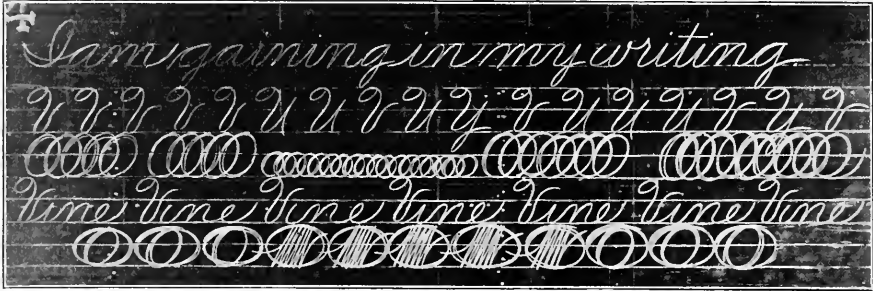 I am gaining in my writing
V V V V V U U V U Y V U U U V Y V
Vine Vine Vine Vine Vine Vine Vine